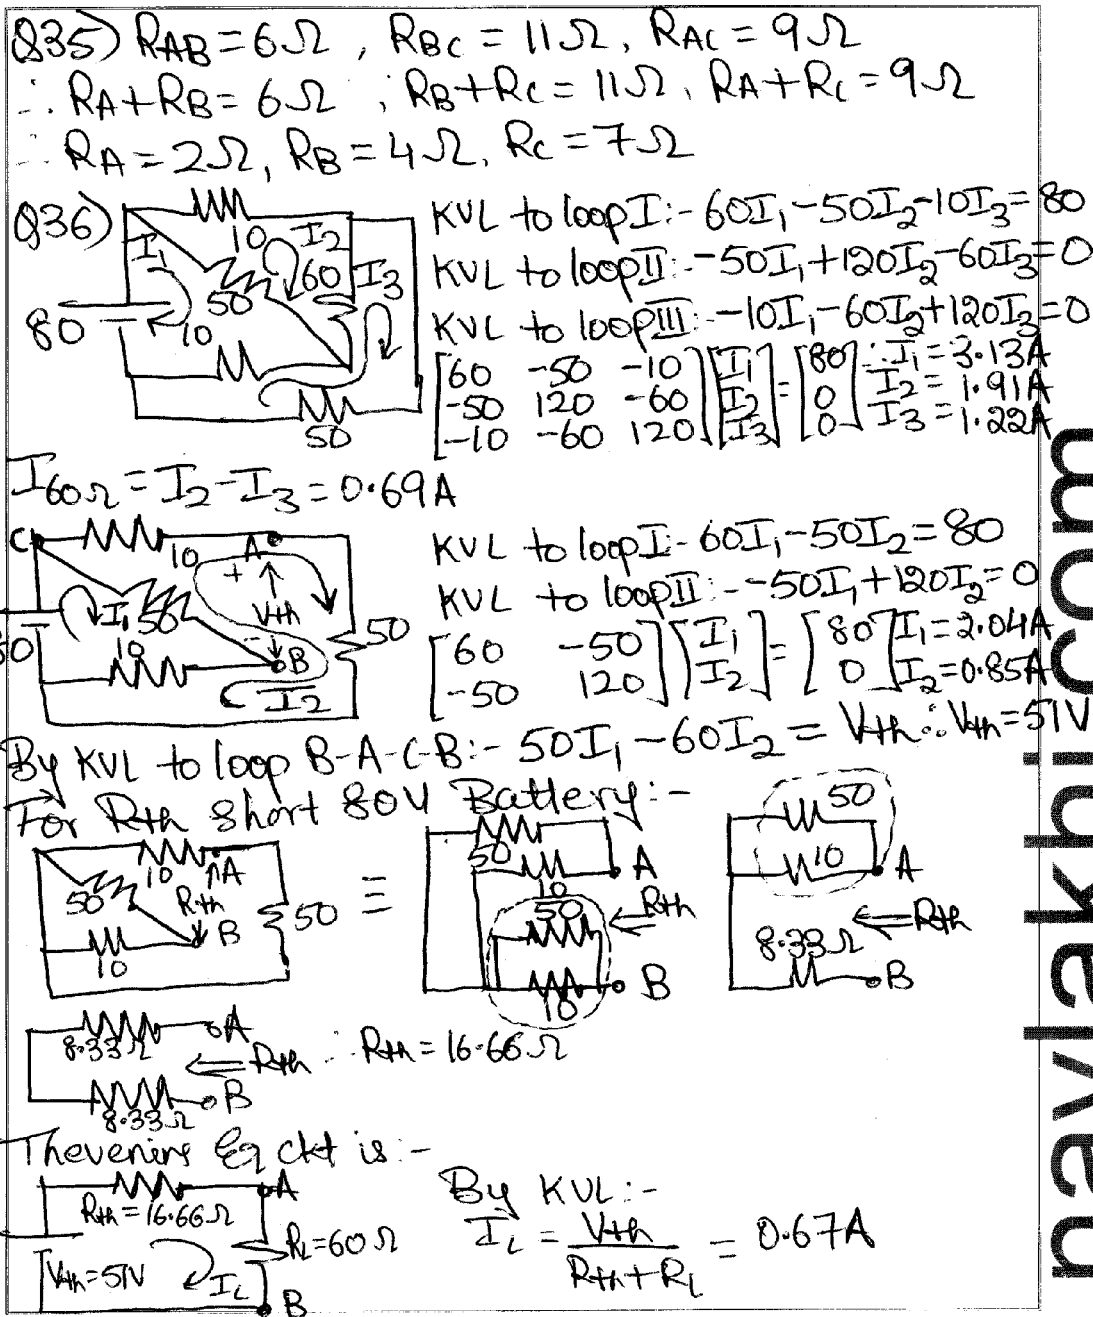 Q35) RAB = 6Ω , RBC = 11Ω, RAC = 9Ω
∴ RA+RB = 6Ω ; RB+RC = 11Ω, RA+RC = 9Ω
∴ RA = 2Ω, RB = 4Ω, RC = 7Ω
Q36)
10
I1
I2
60
I3
50
80
10
50
KVL to loop I:- 60I1-50I2-10I3=80
KVL to loop II:- -50I1+120I2-60I3=0
KVL to loop III:- -10I1-60I2+120I3=0
[60 -50 -10] [I1] = [80] ∴ I1 = 3.13A
[-50 120 -60] [I2] [0] I2 = 1.91A
[-10 -60 120] [I3] [0] I3 = 1.22A
I60Ω = I2-I3 = 0.69A
C
10
A
+
I1
50
Vth
-
50
10
B
I2
KVL to loop I- 60I1-50I2=80
KVL to loop II:- -50I1+120I2=0
[60 -50] [I1] = [80] I1=2.04A
[-50 120] [I2] [0] I2=0.85A
By KVL to loop B-A-C-B:- 50I1-60I2 = Vth ∴ Vth=51V
For Rth short 80V Battery:-
10
A
50
Rth
B
50
10
≡
50
10
A
50
Rth
10
B
50
10
A
Rth
8.33Ω
B
8.33Ω
A
Rth
8.33Ω
B
∴ Rth = 16.66Ω
Thevenins Eq ckt is:-
A
Rth = 16.66Ω
RL=60Ω
Vth=51V
IL
B
By KVL:-
IL = Vth / Rth+RL = 0.67A
navlakhi.com